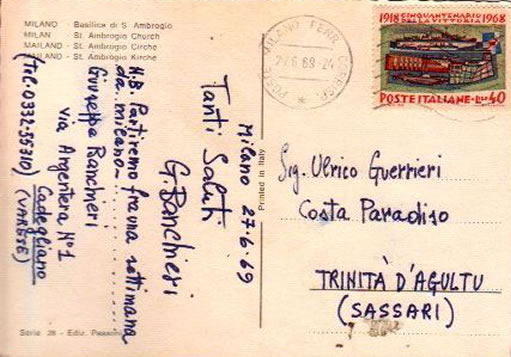 MILANO - Basilica di S. Ambrogio
MILAN - St. Ambrogio Church
MAILAND - St. Ambrogio Cirche
MAILAND - St. Ambrogio Kirche
Milano 27-6-69
Tanti Saluti
G. Banchieri
N.B. Partiremo fra una settimana
da milano
Giuseppe Banchieri
via Argentera N°1
Cadegliano
(VARESE)
(tel. 0332-55310)
Serie 28 - Ediz.
Printed in Italy
POSTE MILANO FERR. CORRISP.
6 69-24
1918 CINQUANTENARIO 1968
DELLA VITTORIA
POSTE ITALIANE LIRE 40
Sig. Ulrico Guerrieri
Costa Paradiso
TRINITÀ D'AGULTU
(SASSARI)